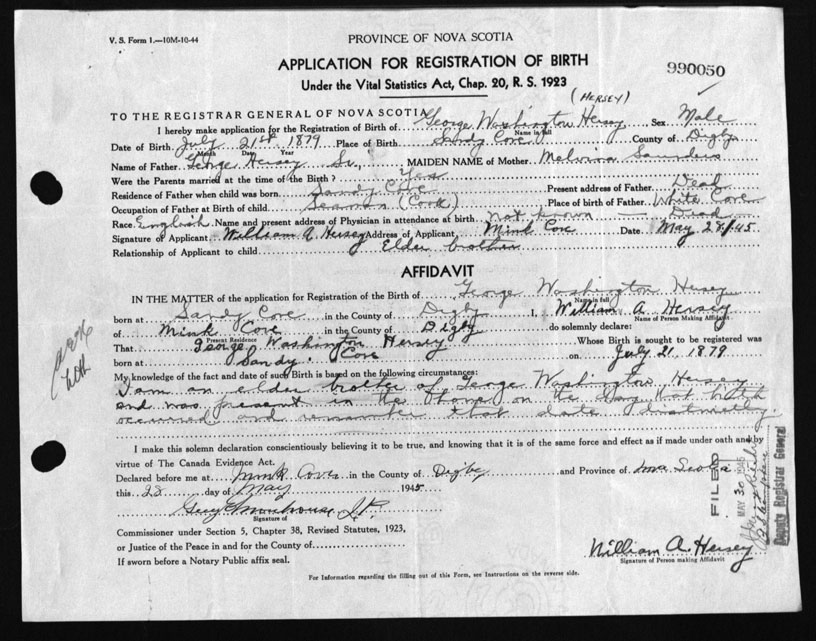 V. S. Form 1.—10M-10-44
PROVINCE OF NOVA SCOTIA
APPLICATION FOR REGISTRATION OF BIRTH
Under the Vital Statistics Act, Chap. 20, R. S. 1923
990050
(HERSEY)
TO THE REGISTRAR GENERAL OF NOVA SCOTIA
I hereby make application for the Registration of Birth of George Washington Hersey Sex Male
Name in full
Date of Birth July 21st 1879 Place of Birth Sandy Cove County of Digby
Month Date Year
Name of Father George Hersey Sr., MAIDEN NAME of Mother Melvina Saunders
Were the Parents married at the time of the Birth? Yes
Residence of Father when child was born Sandy Cove Present address of Father Dead
Occupation of Father at Birth of child Seaman (Cook) Place of birth of Father White Cove
Race English Name and present address of Physician in attendance at birth not known — Dead
Signature of Applicant William A Hersey Address of Applicant, Mink Cove Date May 28/45
Relationship of Applicant to child Elder brother
AFFIDAVIT
IN THE MATTER of the application for Registration of the Birth of George Washington Hersey
Name in full
born at Sandy Cove in the County of Digby I, William A Hersey
Name of Person Making Affidavit
of Mink Cove in the County of Digby do solemnly declare:
Present Residence
That George Washington Hersey Whose Birth is sought to be registered was
born at Sandy Cove on July 21, 1879
My knowledge of the fact and date of such Birth is based on the following circumstances:
I am an elder brother of George Washington Hersey
and was present in the home on the day that birth
occurred and remember that date distinctly.
I make this solemn declaration conscientiously believing it to be true, and knowing that it is of the same force and effect as if made under oath and by
virtue of The Canada Evidence Act.
Declared before me at Mink Cove in the County of Digby and Province of Nova Scotia
this 28 day of May 1945
Guy Morehouse J.P.
Signature of
Commissioner under Section 5, Chapter 38, Revised Statutes, 1923,
or Justice of the Peace in and for the County of
If sworn before a Notary Public affix seal.
William A. Hersey
Signature of Person making Affidavit
For Information regarding the filling out of this Form, see Instructions on the reverse side.
FILED
MAY 30 1945
Deputy Registrar General